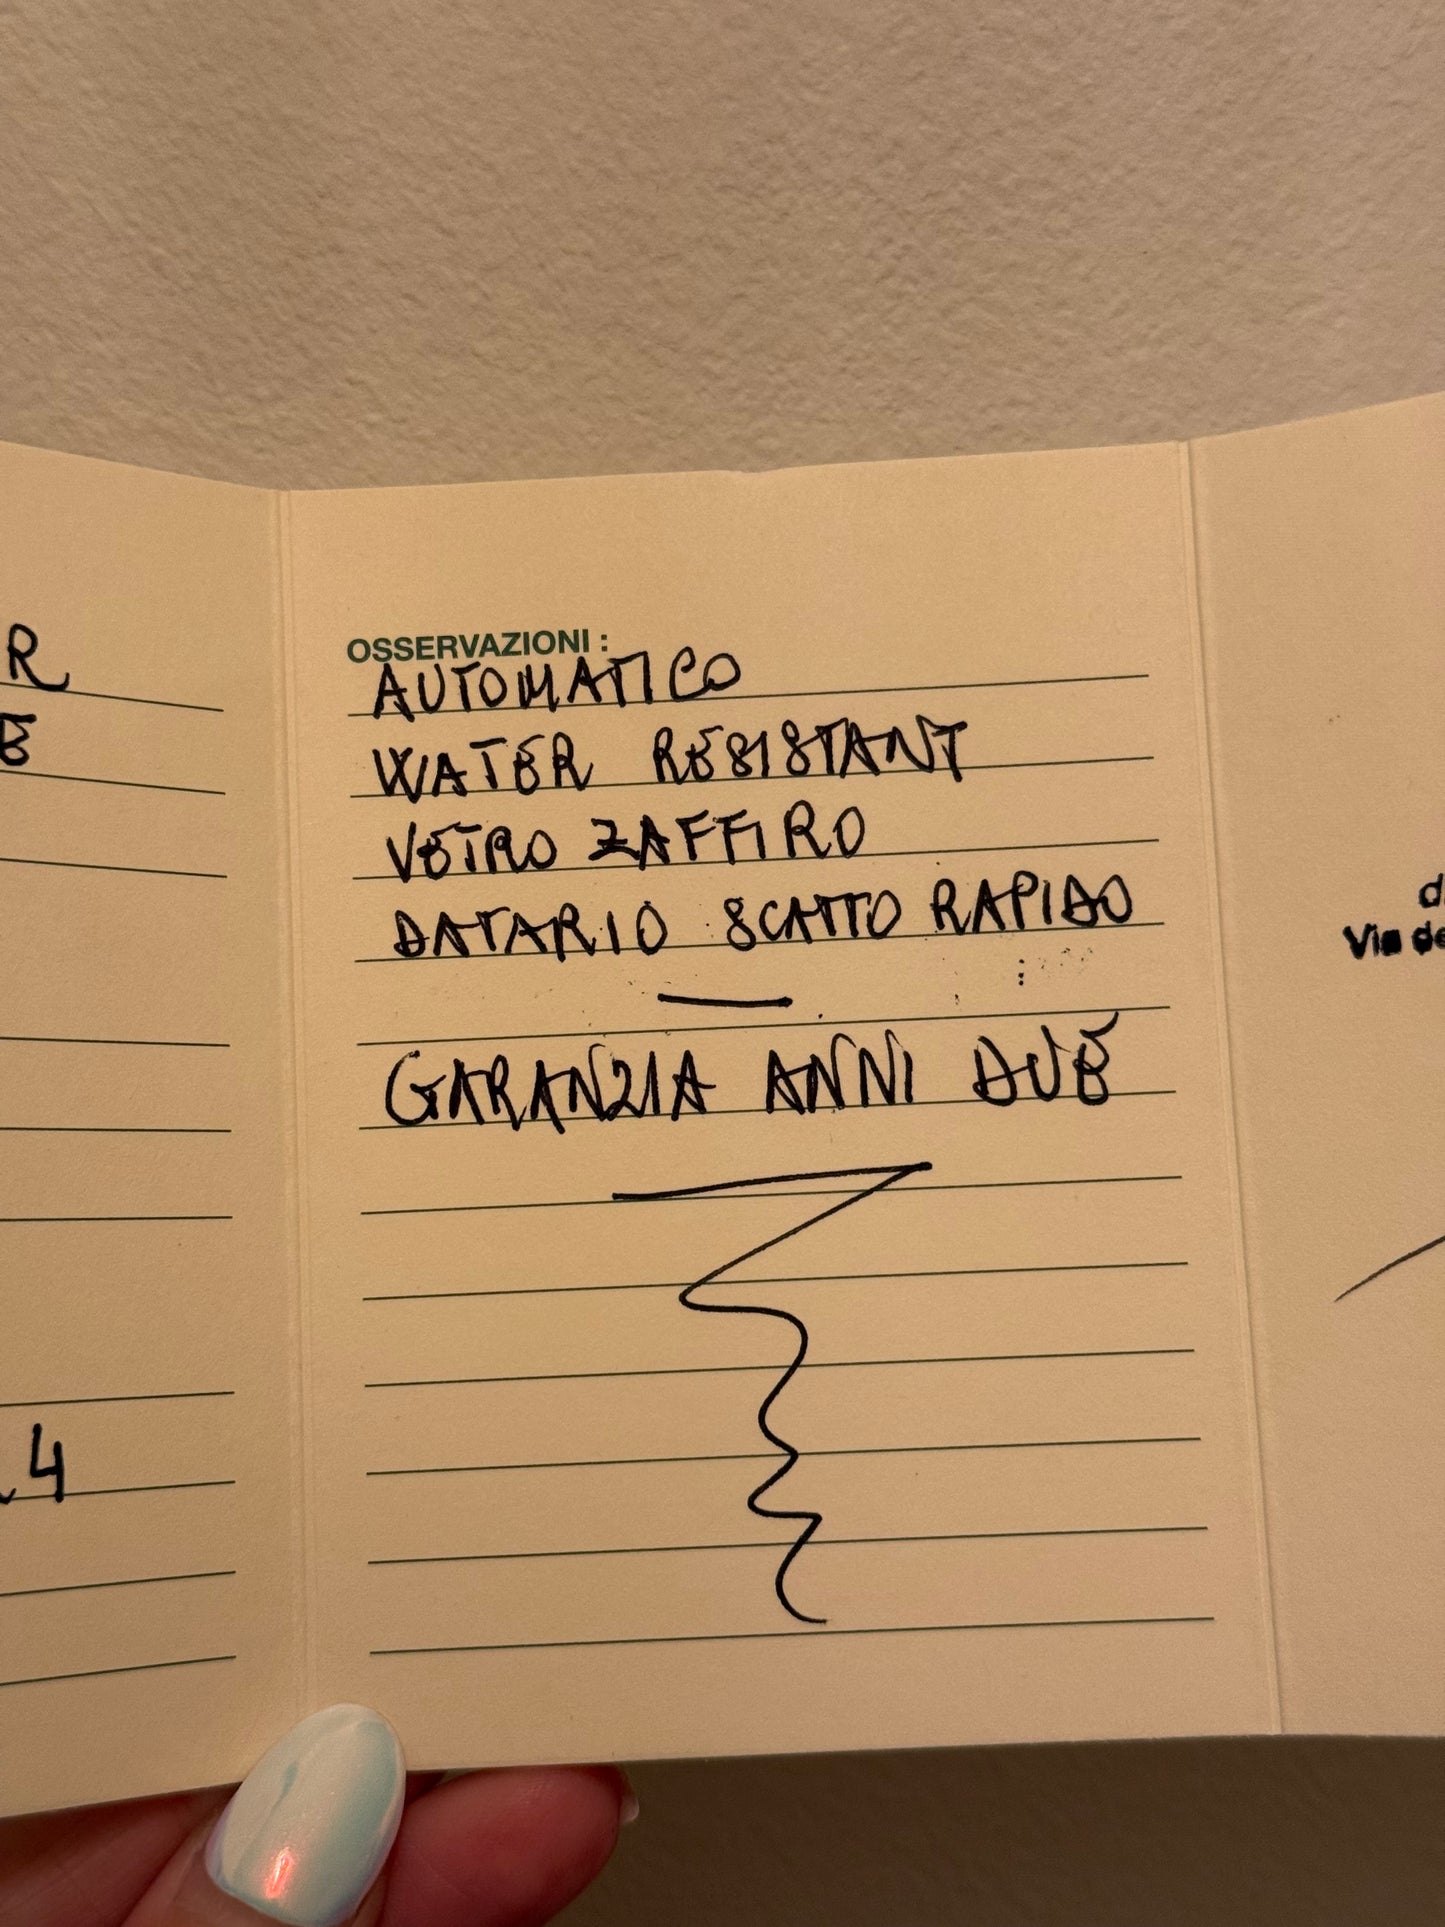 OSSERVAZIONI :
AUTOMATICO
WATER RESISTANT
VETRO ZAFFIRO
DATARIO SCATTO RAPIDO
GARANZIA ANNI DUE
R
E
4
Via de